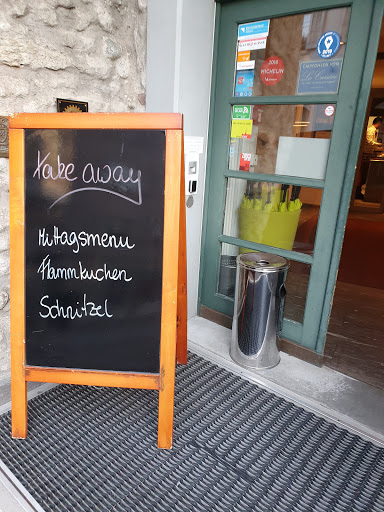 take away
Mittagsmenu
Flammkuchen
Schnitzel
2018
MICHELIN
2019